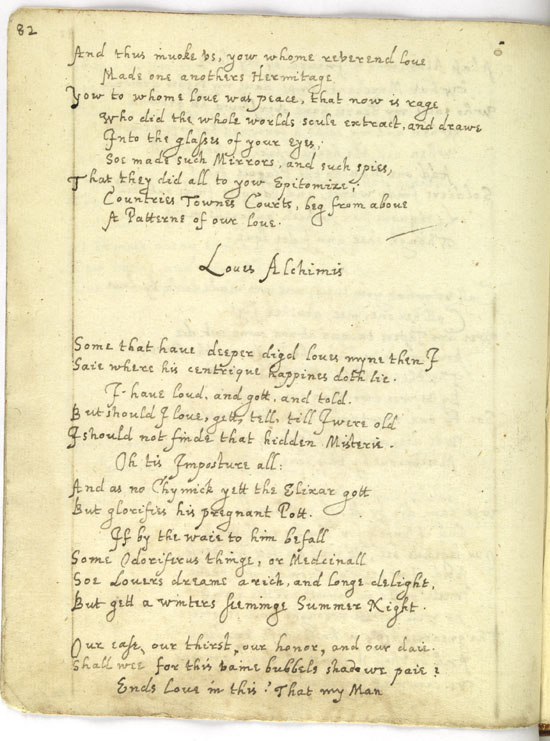 82
And thus invoke vs, yow whome reverend love
Made one anothers Hermitage
Yow to whome love was peace, that now is rage
Who did the whole worlds soule extract, and drawe
Into the glasses of your Eyes,
Soe made such Mirrors, and such spies,
That they did all to yow Epitomize;
Countries Townes Courts, beg from above
A Patterne of our love.
Loues Alchimis
Some that have deeper digd loves myne then I
Saie where his centrique happines doth lie.
I have lovd, and gott, and told.
But should I love, gett, tell, till I were old
I should not finde that hidden Misterie.
Oh tis Imposture all:
And as no Chymick yett the Elixar gott
But glorifies his pregnant Pott.
If by the waie to him befall
Some Odoriferus thinge, or Medcinall
Soe Lovers dreame a rich, and longe delight,
But gett a winters seeminge Summer Night.
Our ease, our thirst, our honor, and our daie.
Shall wee for this vaine bubbels shadowe paie?
Ends Love in this? That my Man